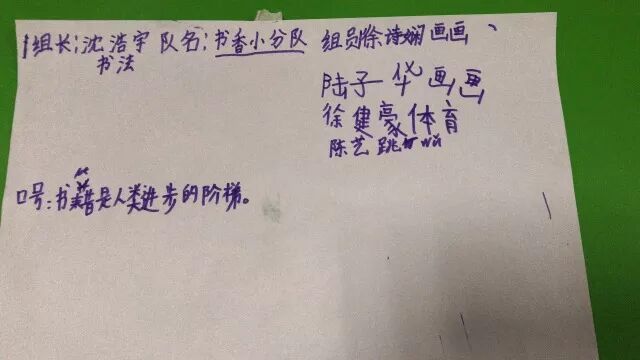 组长:沈浩宇 队名:书香小分队 组员徐诗娴画画、
书法
陆子华画画
徐健豪体育
陈艺跳wǔ
口号:书籍是人类进步的阶梯。